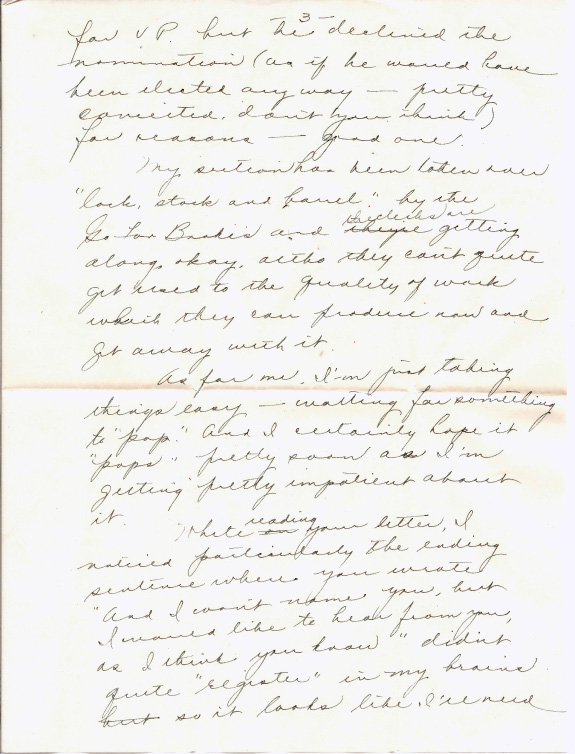 -3-
for V P. but he declined the
nomination (as if he would have
been elected anyway — pretty
conceited, don't you think)
for reasons — good one.
My section has been taken over
"lock, stock and barrel" by the
and the clerks are they're getting
along okay, altho they can't quite
get used to the quality of work
which they can produce now and
get away with it.
As for me, I'm just taking
things easy — waiting for something
to "pop." And I certainly hope it
"pops" pretty soon as I'm
getting pretty impatient about
it.
While on reading your letter, I
noticed particularly the ending
sentence where you wrote
"And I won't name you, but
I would like to hear from you,
as I think you know" didn't
quite "register" in my brains
but so it looks like I've need